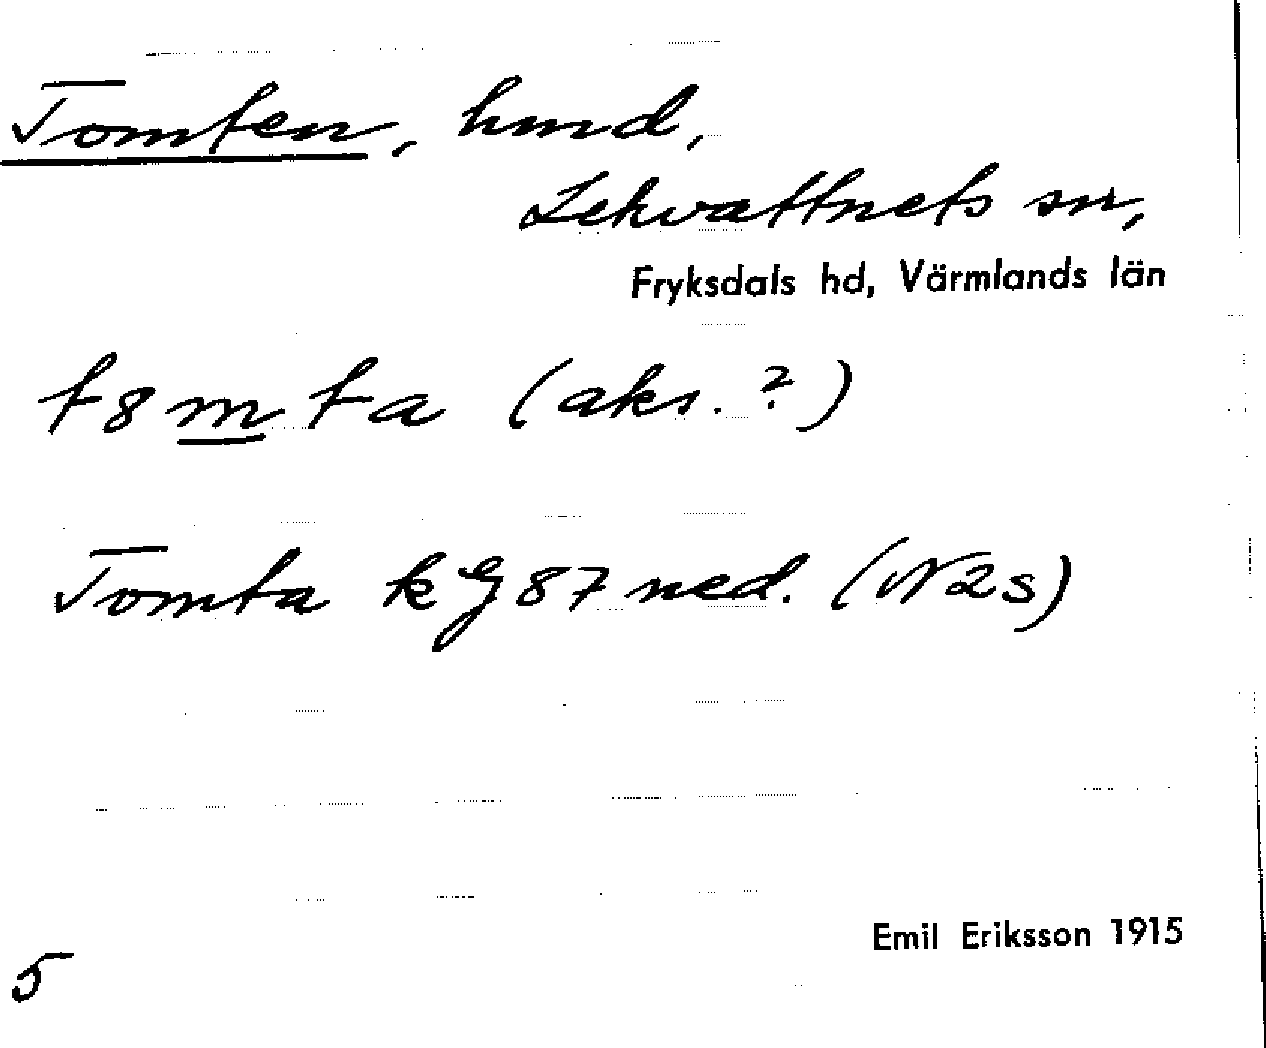 Tomten, hmd,
Lekvattnets sn,
Fryksdals hd, Värmlands län
t8mta (aks. ?)
Tomta k 87 ned. (N2s)
Emil Eriksson 1915
5